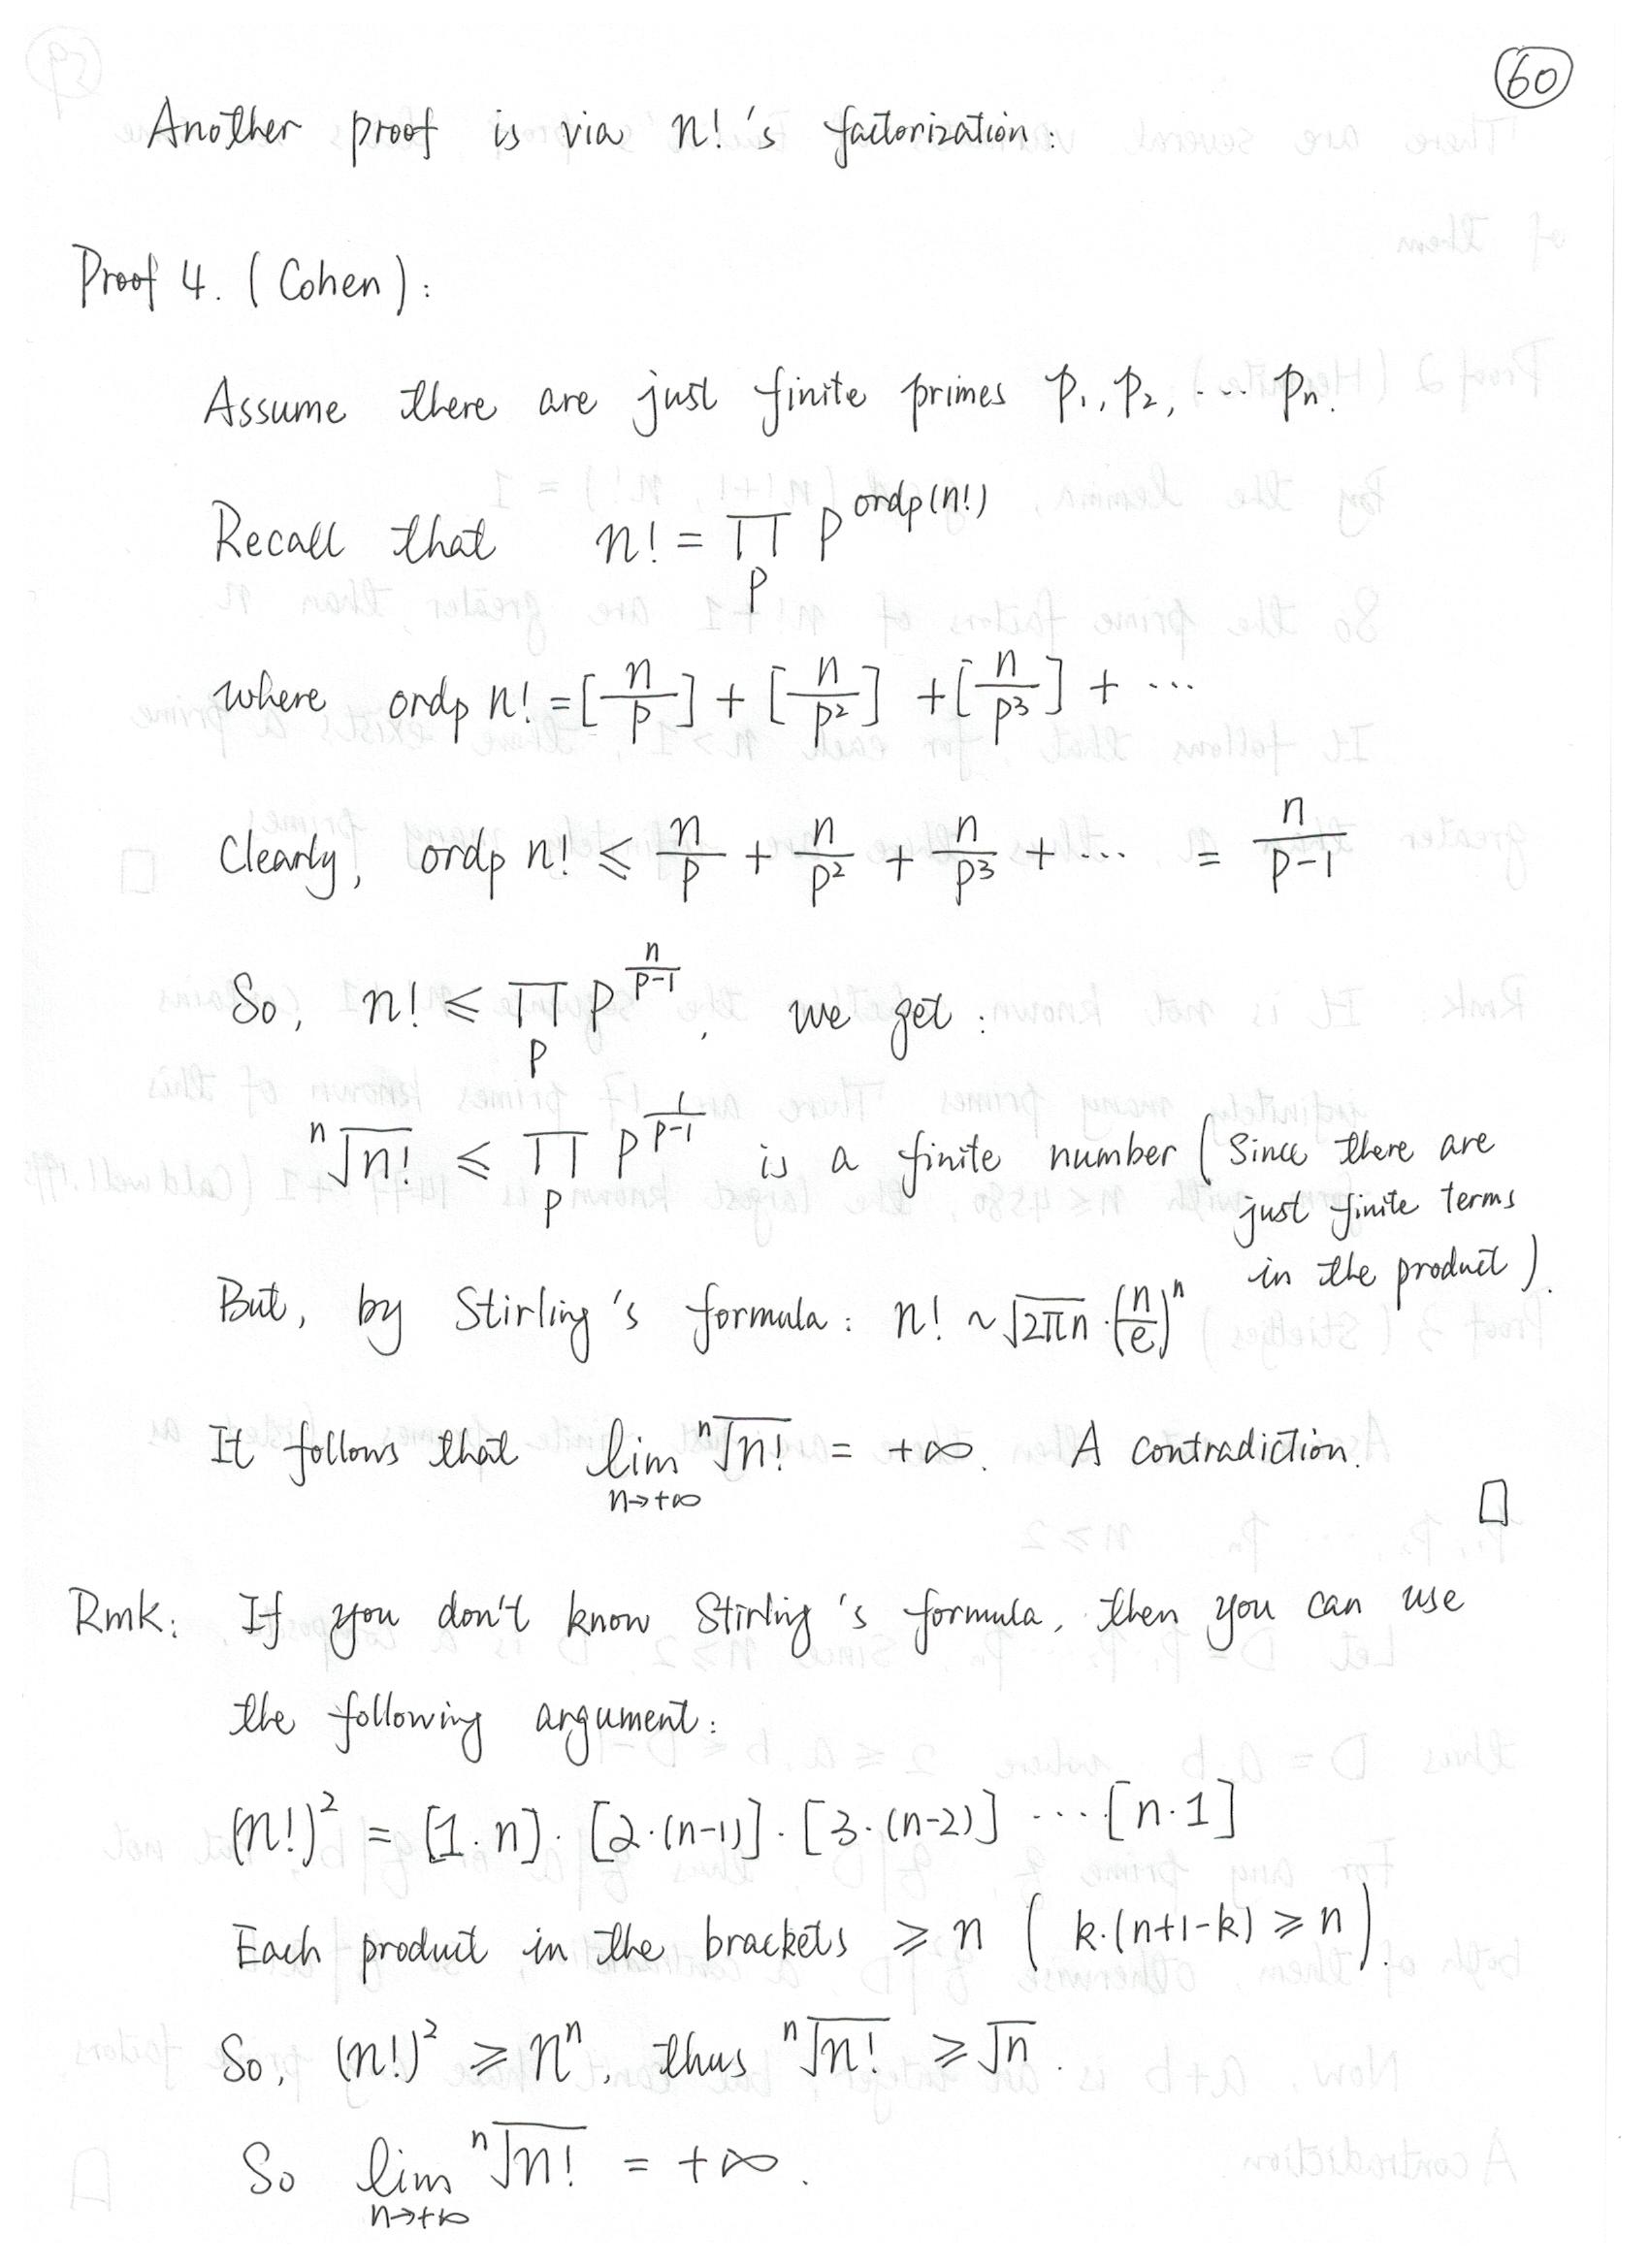 60
Another proof is via n!'s factorization:
Proof 4. (Cohen):
Assume there are just finite primes p₁, p₂, ... pₙ.
Recall that n! = ∏_p p^{ord_p(n!)}
where ord_p n! = [n/p] + [n/p²] + [n/p³] + ...
Clearly, ord_p n! ⩽ n/p + n/p² + n/p³ + ... = n/(p-1)
So, n! ⩽ ∏_p p^{n/(p-1)}, we get:
ⁿ√n! ⩽ ∏_p p^{1/(p-1)} is a finite number (Since there are
just finite terms
in the product).
But, by Stirling's formula: n! ~ √(2πn) · (n/e)ⁿ
It follows that lim_{n→+∞} ⁿ√n! = +∞. A contradiction.
□
Rmk: If you don't know Stirling's formula, then you can use
the following argument:
(n!)² = [1·n]·[2·(n-1)]·[3·(n-2)] ... [n·1]
Each product in the brackets ⩾ n (k·(n+1-k) ⩾ n).
So, (n!)² ⩾ nⁿ, thus ⁿ√n! ⩾ √n.
So lim_{n→+∞} ⁿ√n! = +∞.